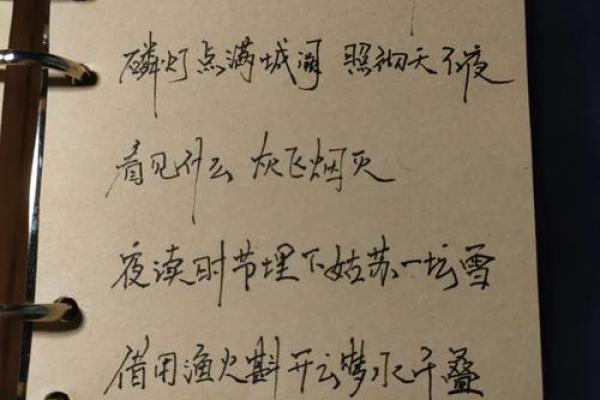 磷灯点满城阙 照彻天不夜
看见什么 灰飞烟灭
夜读时节埋下姑苏一坛雪
借用渔火斟开云梦水千叠